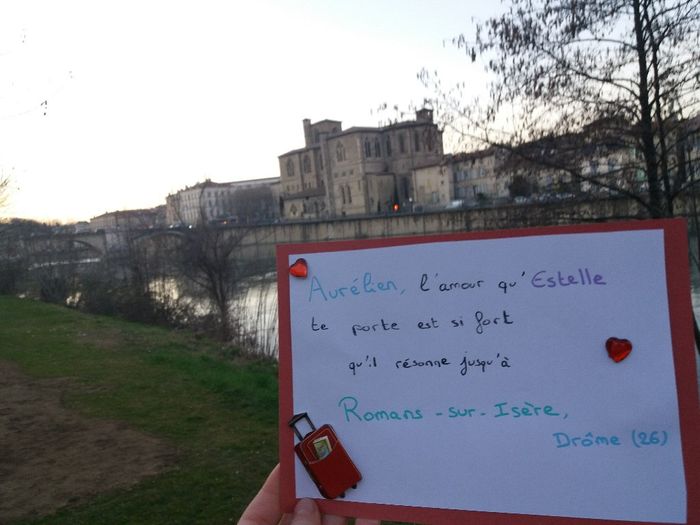 Aurélien, l'amour qu'Estelle
te porte est si fort
qu'il résonne jusqu'à
Romans-sur-Isère,
Drôme (26)